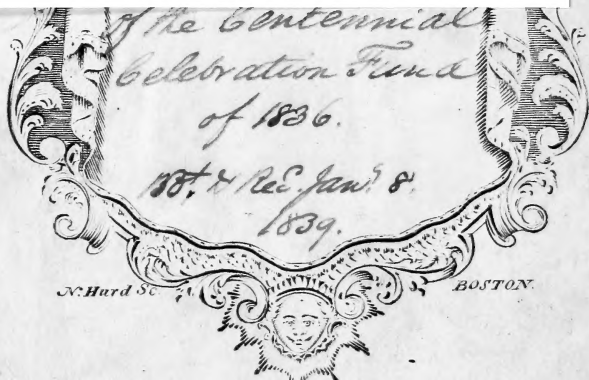 of the Centennial
Celebration Fund
of 1836.
Bot. & Rec. Jan.y 8.
1839.
N. Hurd Sc. BOSTON.